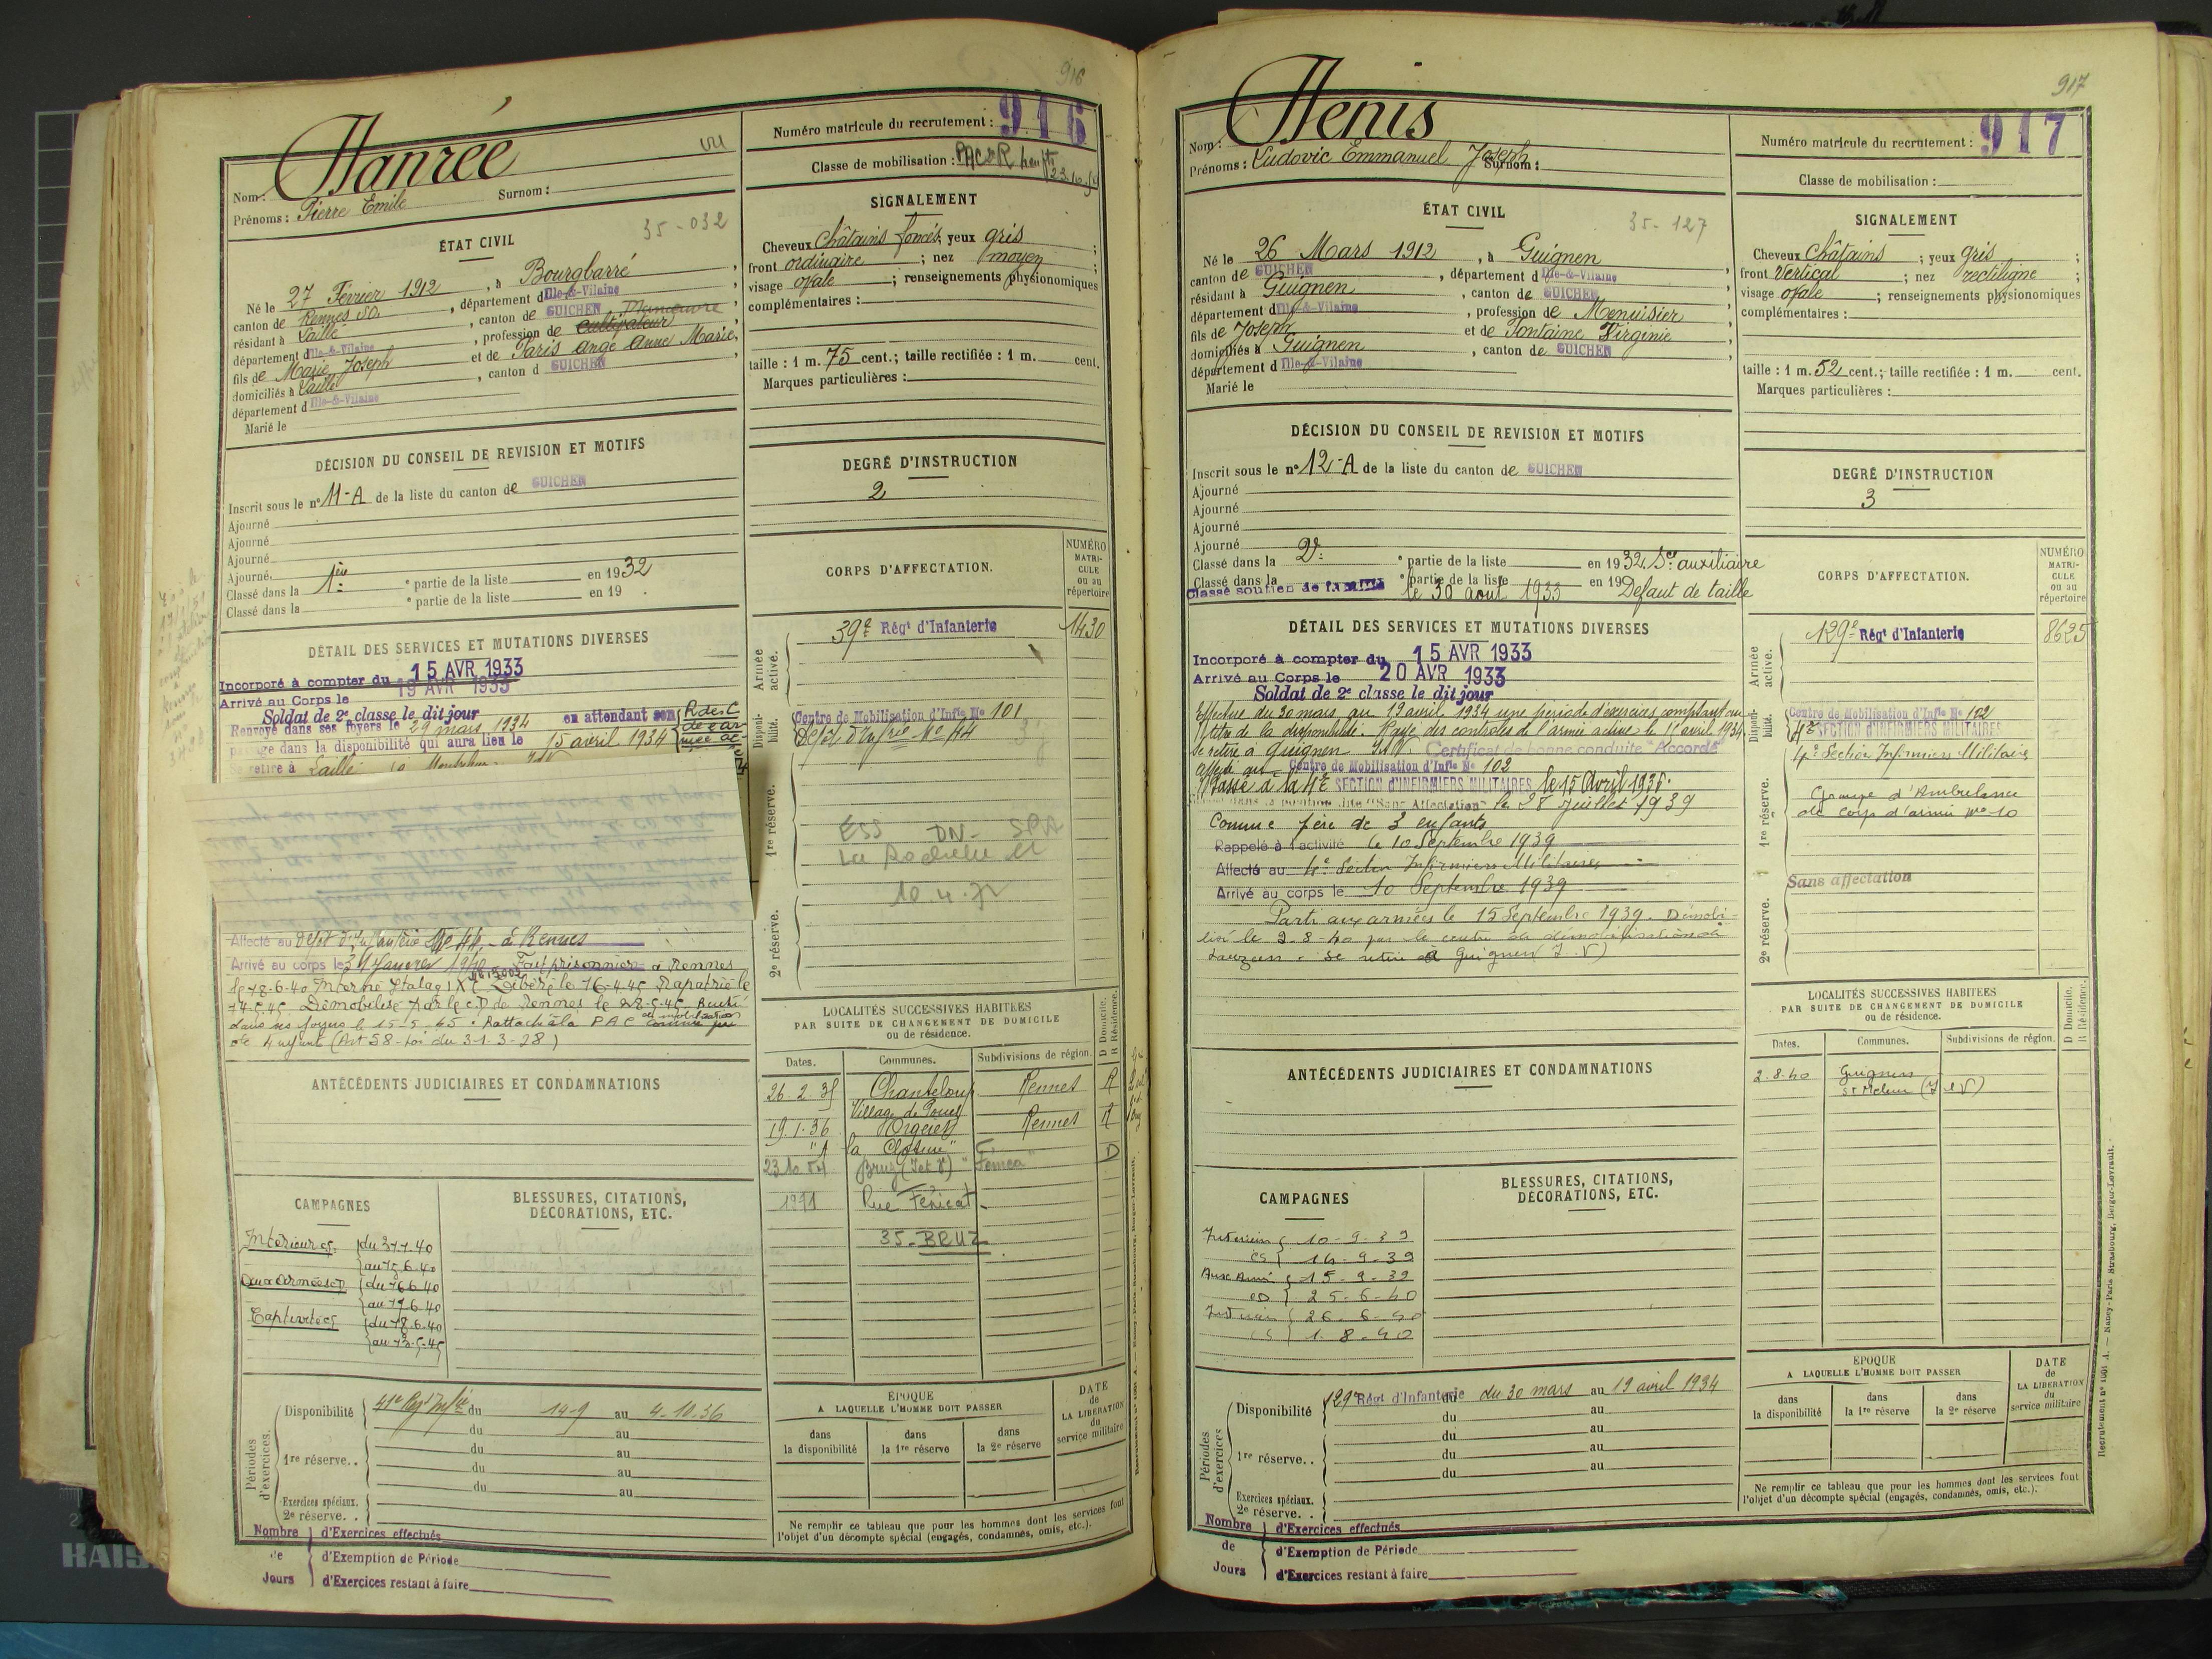 916
Hanrée
vu
Nom :
Prénoms : Pierre Emile
Surnom :
ÉTAT CIVIL
35-032
Né le 27 Février 1912, à Bourgbarré,
canton de Rennes SO, département d'Ille-&-Vilaine,
résidant à Laillé, canton de GUICHEN Manoeuvre,
département d'Ille-&-Vilaine, profession de cultivateur
fils de Marie Joseph et de Paris Ange Anne Marie,
domiciliés à Laillé, canton d GUICHEN,
département d'Ille-&-Vilaine
Marié le
DÉCISION DU CONSEIL DE REVISION ET MOTIFS
Inscrit sous le n° 11-A de la liste du canton de GUICHEN
Ajourné
Ajourné
Ajourné
Ajourné
Classé dans la 1ère ° partie de la liste en 1932
Classé dans la ° partie de la liste en 19 .
DÉTAIL DES SERVICES ET MUTATIONS DIVERSES
Incorporé à compter du 15 AVR 1933
Arrivé au Corps le 19 AVR 1933
Soldat de 2e classe le dit jour
Renvoyé dans ses foyers le 29 mars 1934 en attendant son
passage dans la disponibilité qui aura lieu le 15 avril 1934
Se retire à Laillé
Affecté au Dépôt d'Infanterie No 44 à Rennes
Arrivé au corps le 31 Janvier 1940 Fait prisonnier à Rennes
le 18-6-40 Interné Stalag IX C Libéré le 16-4-45 Rapatrié le
14-5-45 Démobilisé par le C D de Rennes le 28-5-45
dans ses foyers le 15-5-45. Rattaché à la P A C comme père
de 4 enfants (Art 58 - Loi du 31-3-28)
ANTÉCÉDENTS JUDICIAIRES ET CONDAMNATIONS
CAMPAGNES
Intérieur cs. du 31-1-40
au 15-6-40
Aux Armées CD du 16-6-40
au 17-6-40
Captivité cs du 18-6-40
au 13-5-45
BLESSURES, CITATIONS,
DÉCORATIONS, ETC.
Périodes d'exercices.
Disponibilité 41e Régt Infie du 14-9 au 4-10-36
du au
1re réserve. . du au
du au
du au
Exercices spéciaux.
2e réserve. .
Nombre de Jours
d'Exercices effectués
d'Exemption de Période
d'Exercices restant à faire
Numéro matricule du recrutement : 916
Classe de mobilisation :
23.10.54
SIGNALEMENT
Cheveux Châtains foncés; yeux gris ;
front ordinaire ; nez moyen ;
visage ovale ; renseignements physionomiques
complémentaires :
taille : 1 m. 75 cent.; taille rectifiée : 1 m. cent.
Marques particulières :
DEGRÉ D'INSTRUCTION
2
CORPS D'AFFECTATION.
NUMÉRO MATRICULE ou au répertoire
Armée active.
39e Régt d'Infanterie 1430
Disponibilité.
Centre de Mobilisation d'Infie No 101
Dépôt d'Infrie No 44
1re réserve.
ESS DN-
La Rochelle
10.4.72
2e réserve.
LOCALITÉS SUCCESSIVES HABITÉES
PAR SUITE DE CHANGEMENT DE DOMICILE
ou de résidence.
D Domicile.
R Résidence.
Dates. Communes. Subdivisions de région.
26-2-35 Chanteloup Rennes R
Village de
19-1-36 Orgères Rennes R
"la Closerie"
23.10.54 Bruz (I et V) D
1971 Rue Fénicat
35-BRUZ
ÉPOQUE
A LAQUELLE L'HOMME DOIT PASSER
dans la disponibilité
dans la 1re réserve
dans la 2e réserve
DATE de LA LIBERATION du service militaire
Ne remplir ce tableau que pour les hommes dont les services font
l'objet d'un décompte spécial (engagés, condamnés, omis, etc.).
917
Henis
Nom :
Prénoms : Ludovic Emmanuel Joseph Surnom :
ÉTAT CIVIL
35-127
Né le 26 Mars 1912, à Guignen
canton de GUICHEN, département d'Ille-&-Vilaine,
résidant à Guignen, canton de GUICHEN,
département d'Ille-&-Vilaine, profession de Menuisier,
fils de Joseph et de Fontaine Virginie,
domiciliés à Guignen, canton de GUICHEN,
département d'Ille-&-Vilaine
Marié le
DÉCISION DU CONSEIL DE REVISION ET MOTIFS
Inscrit sous le n° 12-A de la liste du canton de GUICHEN
Ajourné
Ajourné
Ajourné
Ajourné
Classé dans la 2e ° partie de la liste en 1932 Sce auxiliaire
Classé dans la ° partie de la liste en 19 Défaut de taille
Classé soutien de famille le 30 août 1933
DÉTAIL DES SERVICES ET MUTATIONS DIVERSES
Incorporé à compter du 15 AVR 1933
Arrivé au Corps le 20 AVR 1933
Soldat de 2e classe le dit jour
Effectue du 30 mars au 19 avril 1934 une période d'exercices comptant au
titre de la disponibilité. Rayé des contrôles de l'armée active le 15 avril 1934
Se retire à Guignen I&V. Certificat de bonne conduite "Accordé"
Affecté au Centre de Mobilisation d'Infie No 102
Passé à la 4e SECTION D'INFIRMIERS MILITAIRES le 15 Avril 1936.
Placé dans la position dite "Sans Affectation" le 28 Juillet 1939
Comme père de 3 enfants
Rappelé à l'activité le 10 Septembre 1939
Affecté au 4e Section Infirmiers Militaires
Arrivé au corps le 10 Septembre 1939
Parti aux armées le 15 Septembre 1939. Démobi-
lisé le 2-8-40 par le centre de démobilisation de
Lauzun. Se retire à Guignen (I.V)
ANTÉCÉDENTS JUDICIAIRES ET CONDAMNATIONS
CAMPAGNES
Intérieur 10-9-39
cs 14-9-39
Aux Armées 15-9-39
CD 25-6-40
Intérieur 26-6-40
cs 1-8-40
BLESSURES, CITATIONS,
DÉCORATIONS, ETC.
Périodes d'exercices
Disponibilité 129e Régt d'Infanterie du 30 mars au 19 avril 1934
du au
du au
1re réserve. . du au
du au
Exercices spéciaux.
2e réserve. .
Nombre de Jours
d'Exercices effectués
d'Exemption de Période
d'Exercices restant à faire
Numéro matricule du recrutement : 917
Classe de mobilisation :
SIGNALEMENT
Cheveux Châtains ; yeux gris ;
front Vertical ; nez rectiligne ;
visage ovale ; renseignements physionomiques
complémentaires :
taille : 1 m. 52 cent.; taille rectifiée : 1 m. cent.
Marques particulières :
DEGRÉ D'INSTRUCTION
3
CORPS D'AFFECTATION.
NUMÉRO MATRICULE ou au répertoire
Armée active.
129e Régt d'Infanterie 8625
Disponibilité.
Centre de Mobilisation d'Infie No 102
4e SECTION D'INFIRMIERS MILITAIRES
4e Section Infirmiers Militaires
1re réserve.
Groupe d'Ambulance
de Corps d'armée No 10
Sans affectation
2e réserve.
LOCALITÉS SUCCESSIVES HABITÉES
PAR SUITE DE CHANGEMENT DE DOMICILE
ou de résidence.
D Domicile.
R Résidence.
Dates. Communes. Subdivisions de région.
2-8-40 Guignen
(I et V)
ÉPOQUE
A LAQUELLE L'HOMME DOIT PASSER
dans la disponibilité
dans la 1re réserve
dans la 2e réserve
DATE de LA LIBERATION du service militaire
Ne remplir ce tableau que pour les hommes dont les services font
l'objet d'un décompte spécial (engagés, condamnés, omis, etc.).
Recrutement n° 1601 A. — Nancy-Paris Strasbourg, Berger-Levrault.